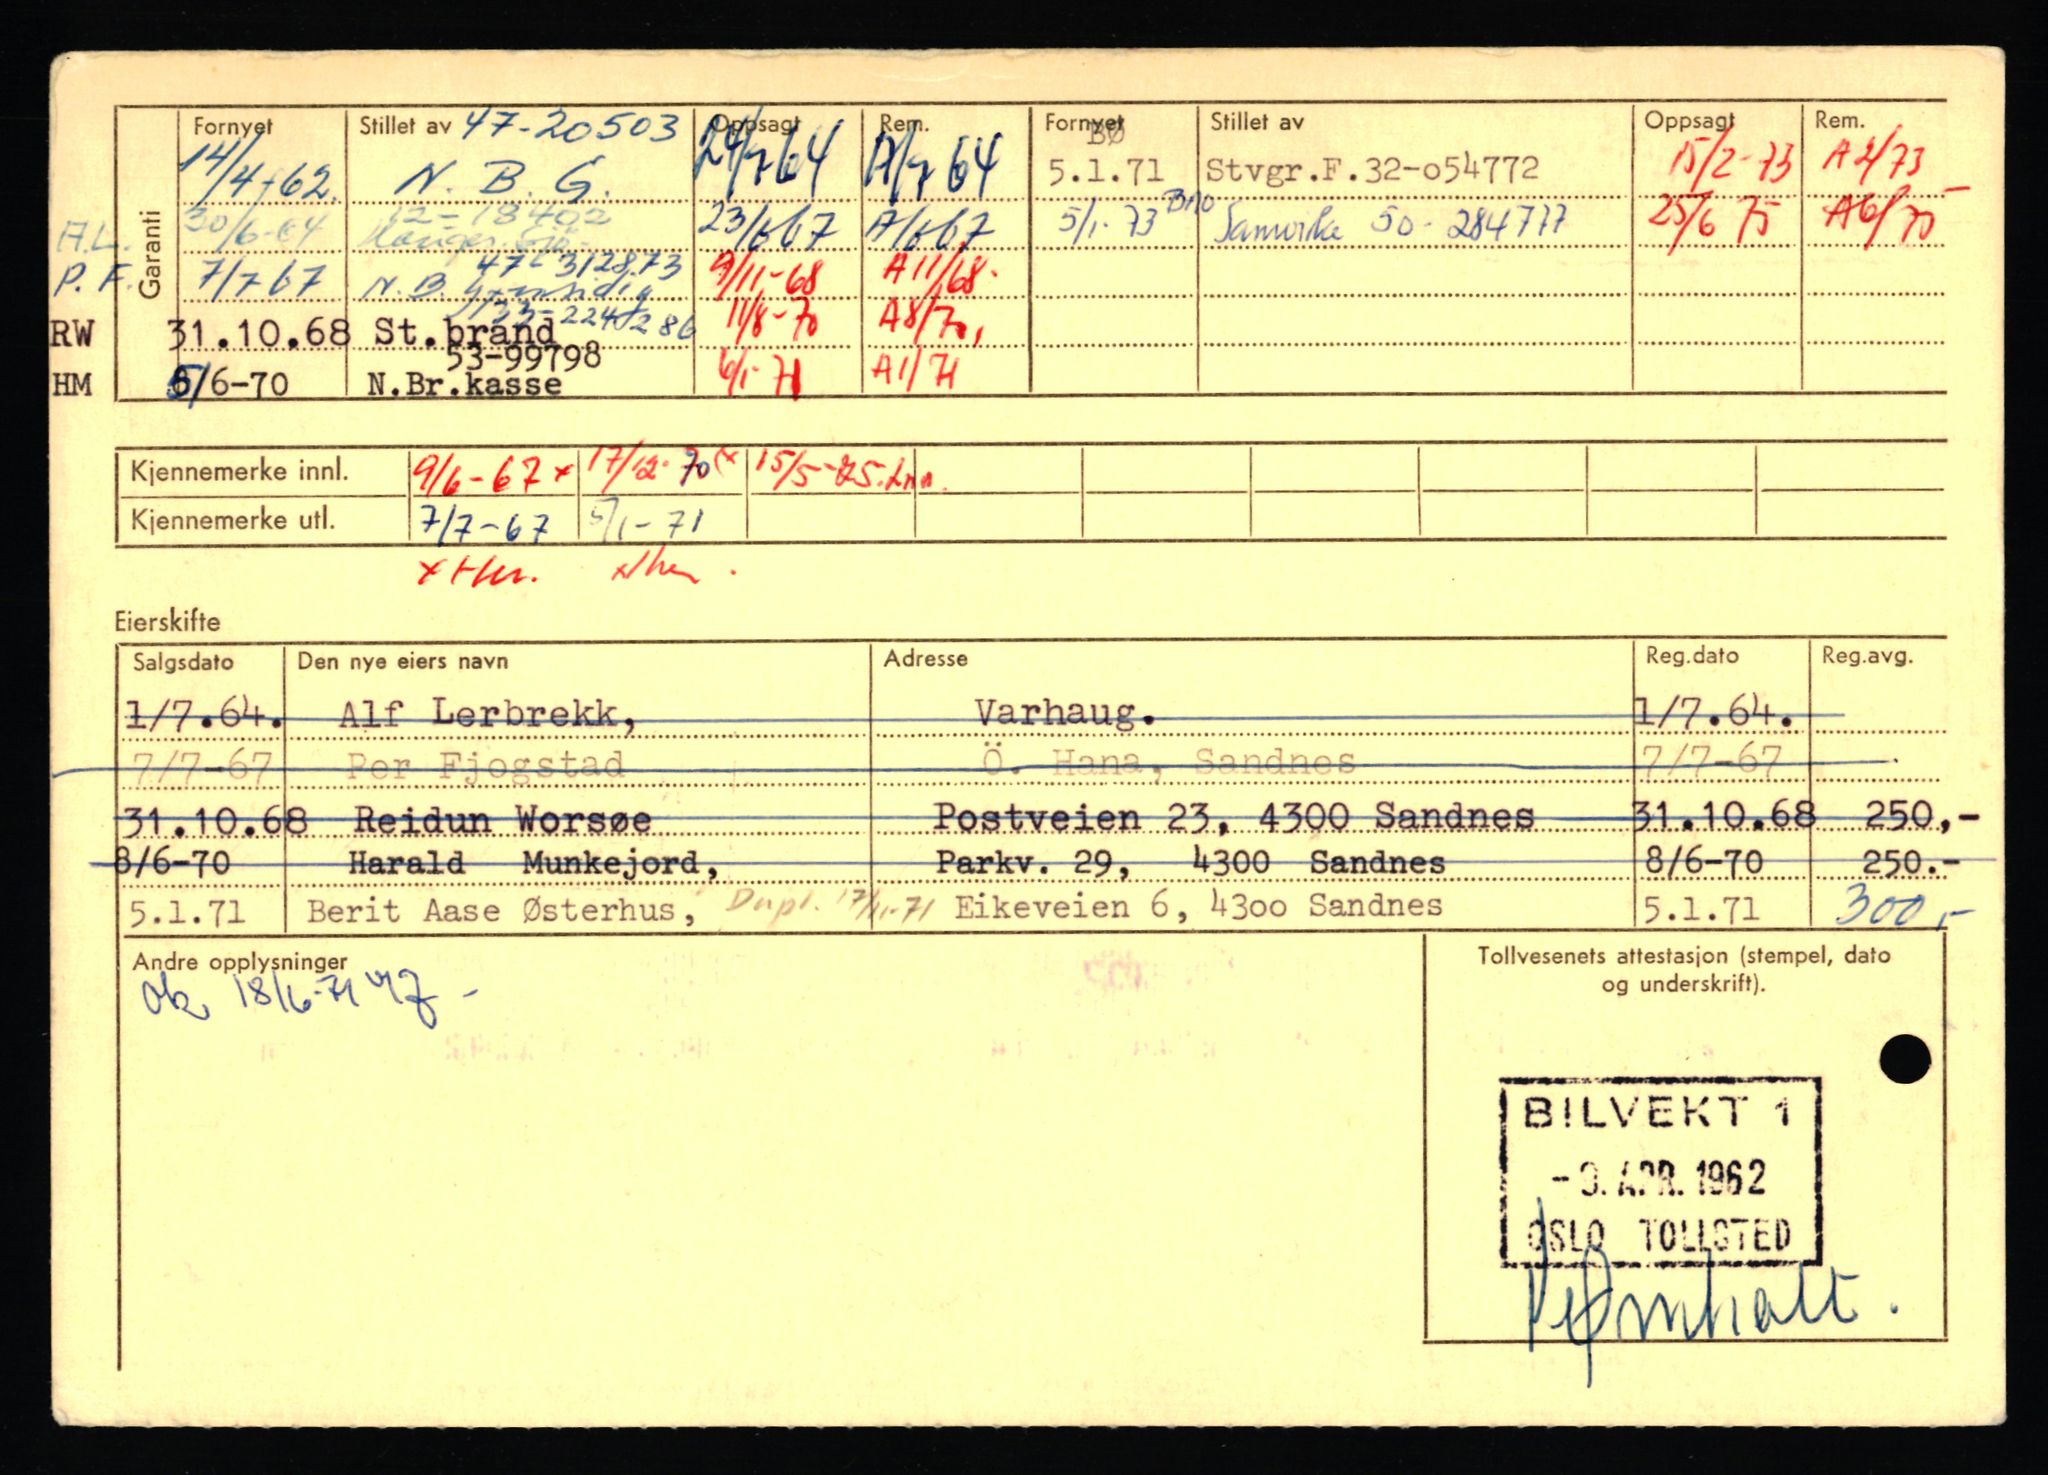 Garanti
Fornyet Stillet av 47-20503 Oppsagt Rem. Fornyet Stillet av Oppsagt Rem.
14/4-62. N. B. G. 24/7 64 A/7 64 BØ 5.1.71 Stvgr.F.32-o54772 15/2-73 A 2/73
A.L. 30/6-64 12-18402 23/6 67 A/6 67 5/1-73 Samvirke 50-284777 25/6 75 A6/75
P. F. 7/7 67 47-312873 N. B. 9/11-68 A 11/68.
RW 31.10.68 St.brand 11/8-70 A8/70,
53-99798
HM 5/6-70 N.Br.kasse 6/1-71 A1/71
Kjennemerke innl. 9/6-67 x 17/12-70 x 15/5-75
Kjennemerke utl. 7/7-67 5/1-71
Eierskifte
Salgsdato Den nye eiers navn Adresse Reg.dato Reg.avg.
1/7.64. Alf Lerbrekk, Varhaug. 1/7.64.
7/7-67 Per Fjogstad Ö. Hana, Sandnes 7/7-67
31.10.68 Reidun Worsøe Postveien 23, 4300 Sandnes 31.10.68 250,-
8/6-70 Harald Munkejord, Parkv. 29, 4300 Sandnes 8/6-70 250.-
5.1.71 Berit Aase Østerhus, Dupl. 17/11-71 Eikeveien 6, 43oo Sandnes 5.1.71 300,-
Andre opplysninger
ok 18/6-71
Tollvesenets attestasjon (stempel, dato
og underskrift).
BILVEKT 1
-9. APR. 1962
OSLO TOLLSTED